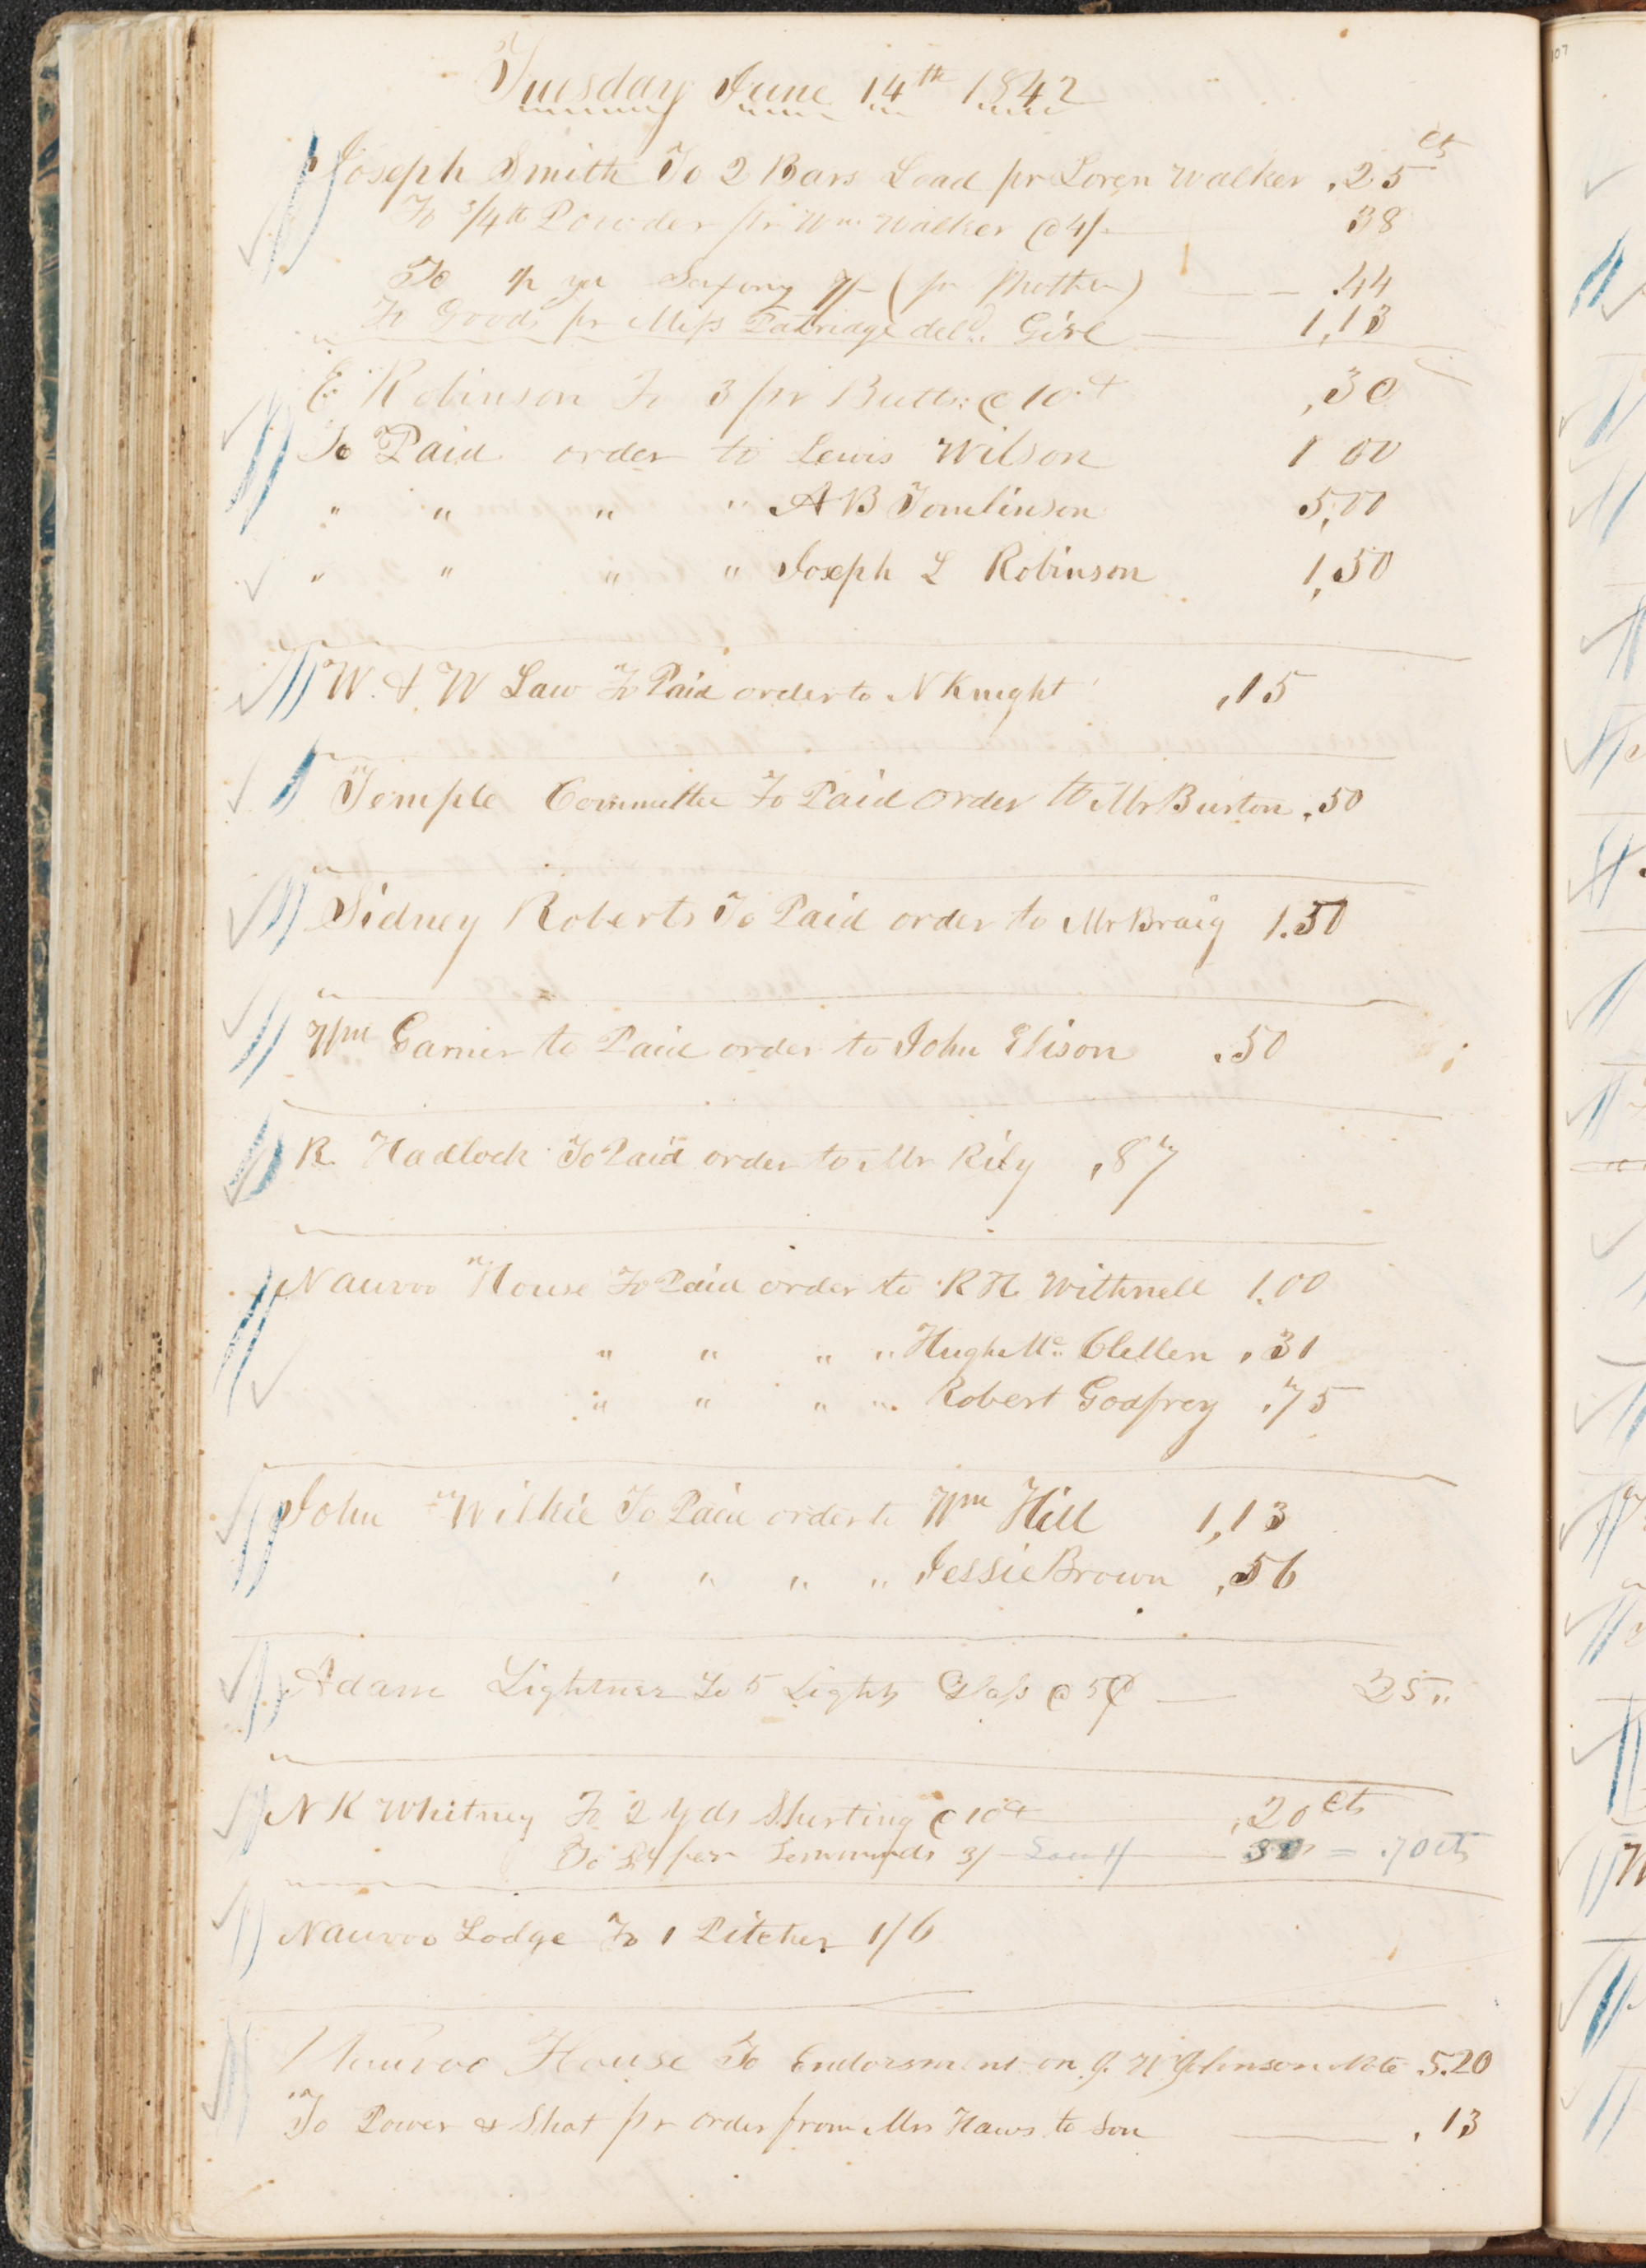 Tuesday June 14th 1842
Joseph Smith To 2 Bars Lead pr Loren Walker .25 cts
To 3/4 lb Powder pr Wm Walker @ 4/- 38
To yd (pr Mother) .44
To Goods pr Miss Patridge deld. Girl 1,13
E Robinson To 3 pr Butts: @ 10 ct ,30
To Paid order to Lewis Wilson 1 00
" " " " A B Tomlinson 5,00
" " " " Joseph L Robinson 1,50
W. & W Law To Paid order to N Knight ,15
Temple Committee To Paid order to Mr Burton .50
Sidney Roberts To Paid order to Mr Braig 1.50
Wm Garner to Paid order to John Elison .50
R. Hadlock To Paid order to Mr Rily ,87
Nauvoo House To Paid order to R H Withnell 1.00
" " " " Hugh Mc Clellen ,31
" " " " Robert Godfrey .75
John Wilkie To Paid order to Wm Hill 1,13
" " " " Jessie Brown ,56
Adam Lightner To 5 Lights Glass @ 5¢ 25"
N K Whitney To 2 Yds Sherting @ 10 ct ,20 cts
To 3/ 50 = .70 cts
Nauvoo Lodge To 1 Pitcher 1/6
Nauvoo House To Endorsment on J. W Johnson Note 5.20
To Power & Shot pr order from Mrs Haws to Son .13
107